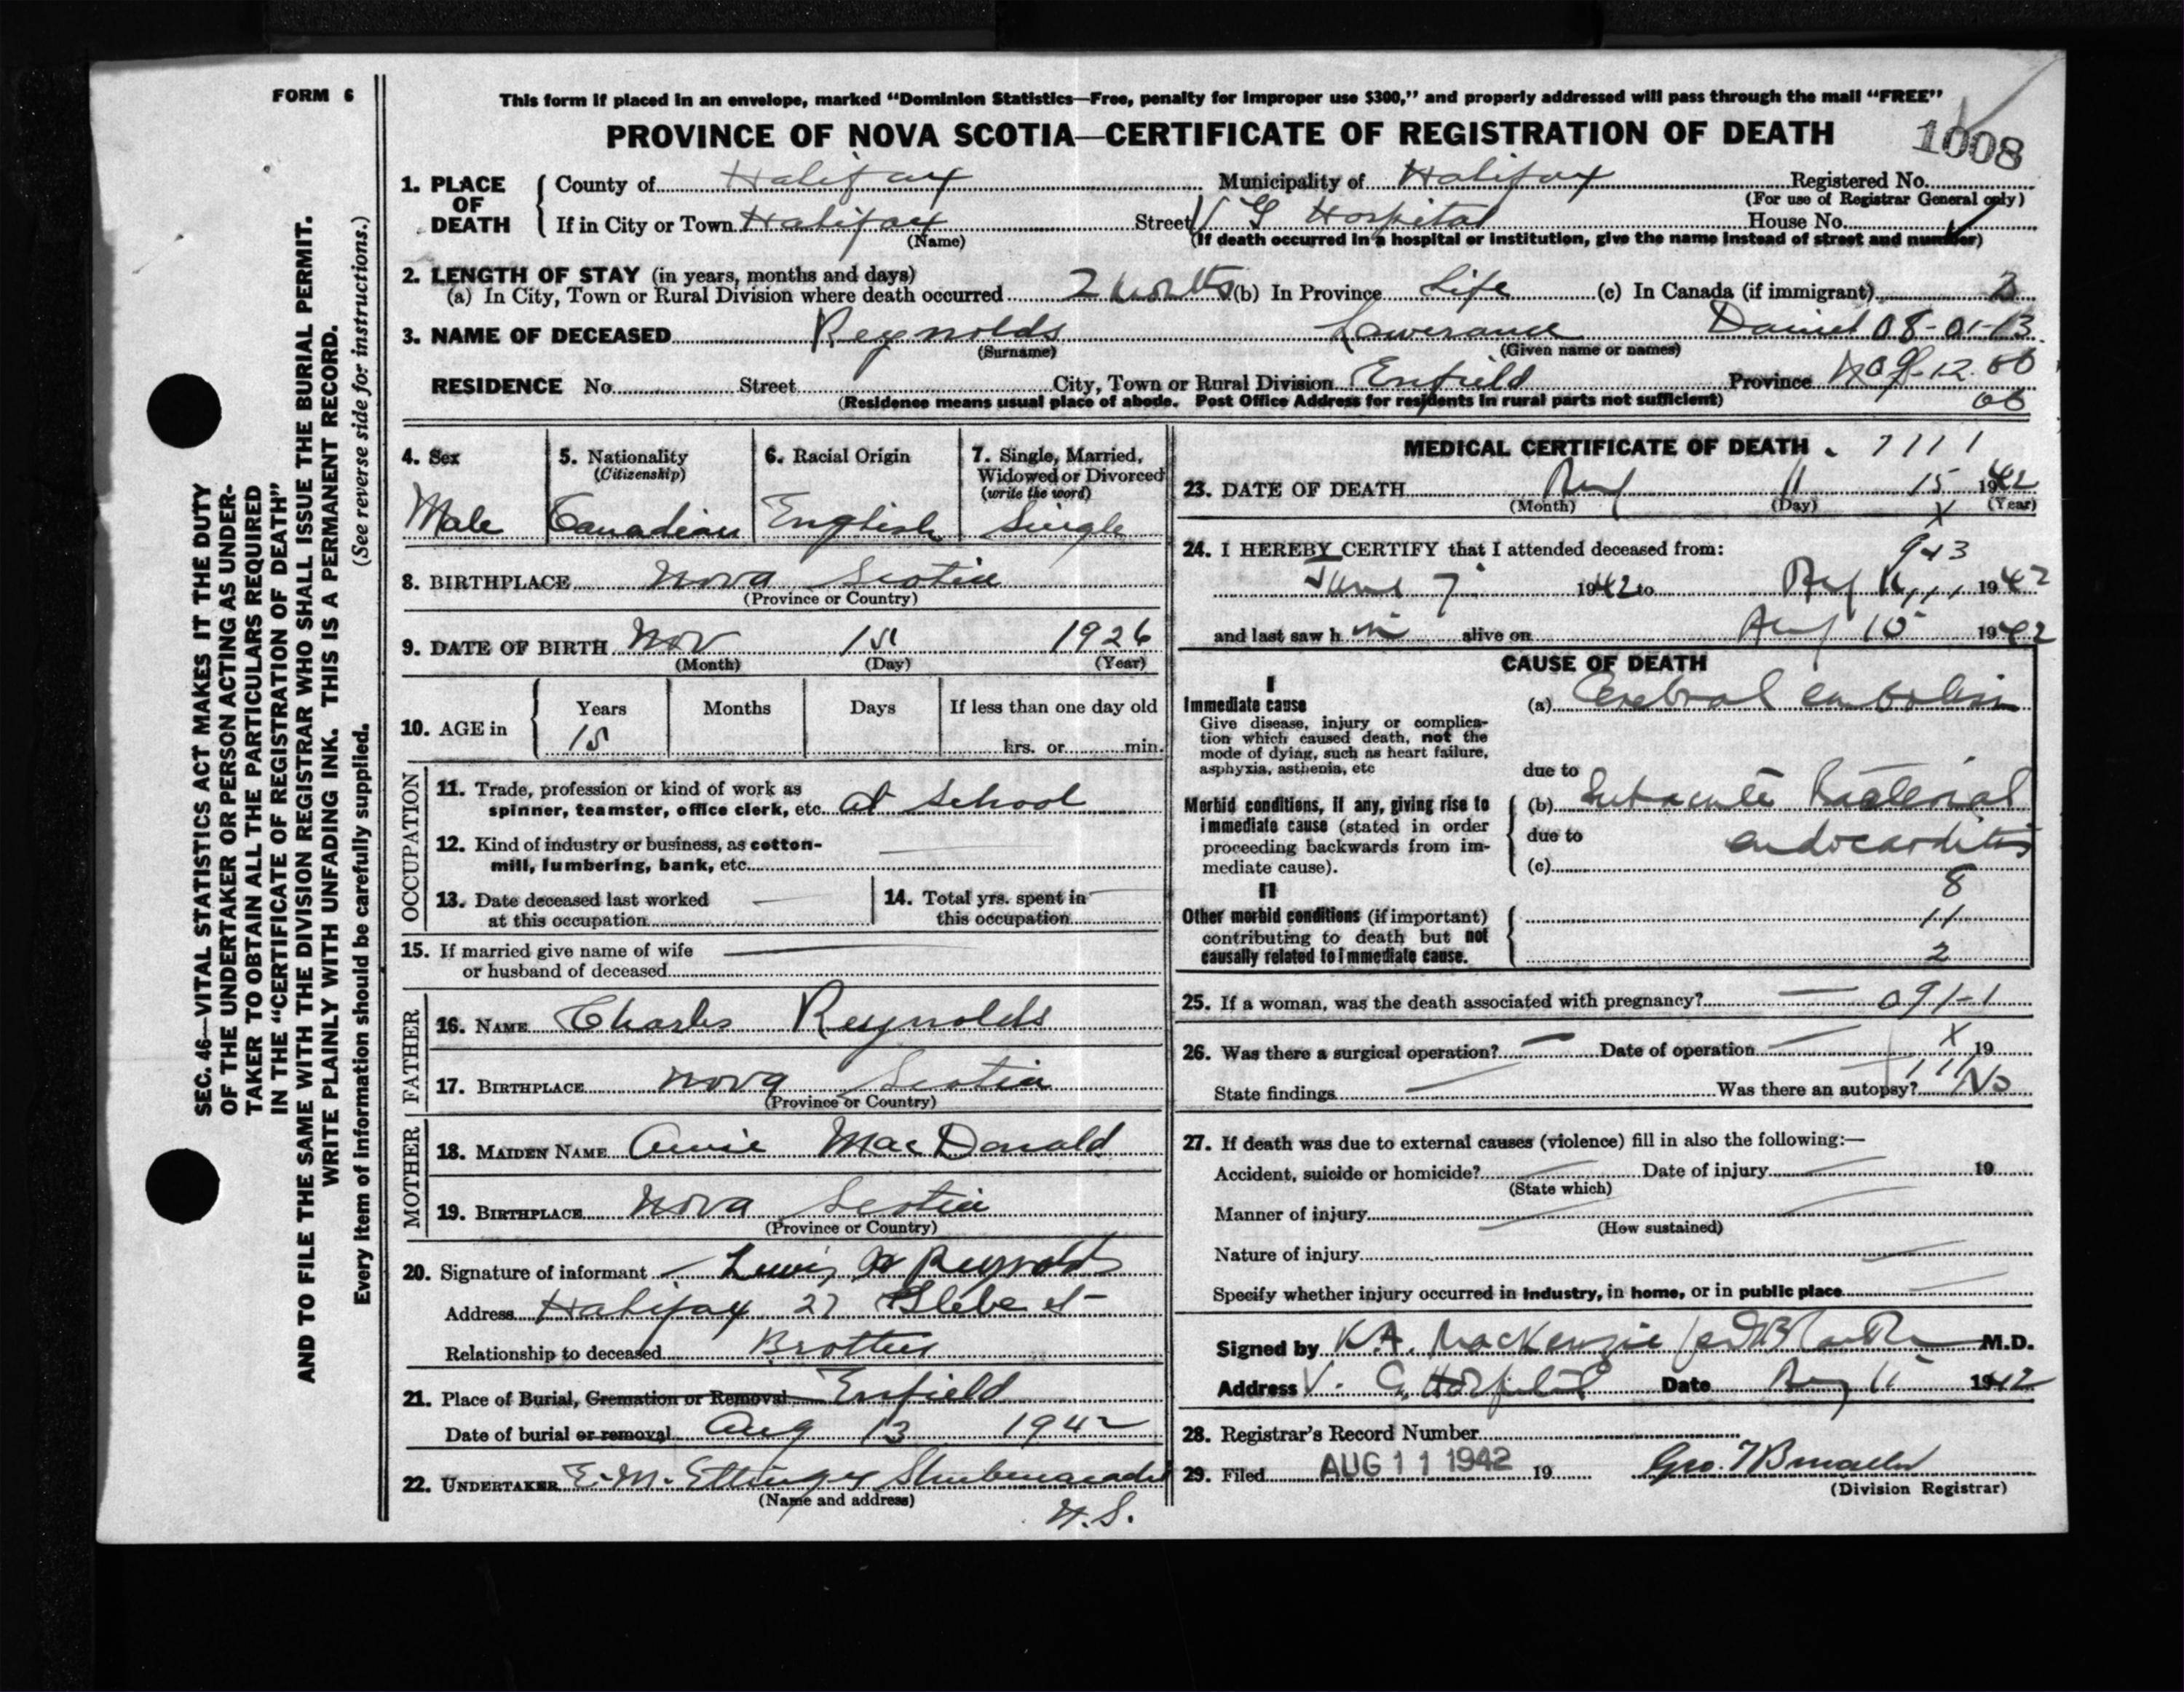 FORM 6
This form if placed in an envelope, marked "Dominion Statistics—Free, penalty for improper use $300," and properly addressed will pass through the mail "FREE"
PROVINCE OF NOVA SCOTIA—CERTIFICATE OF REGISTRATION OF DEATH
1008
1. PLACE OF DEATH County of Halifax Municipality of Halifax Registered No.
(For use of Registrar General only)
If in City or Town Halifax Street V G Hospital House No.
(Name) (If death occurred in a hospital or institution, give the name instead of street and number)
2. LENGTH OF STAY (in years, months and days)
(a) In City, Town or Rural Division where death occurred 2 months (b) In Province Life (c) In Canada (if immigrant)
3. NAME OF DECEASED Reynolds Lawerance Daniel 08-01-13
(Surname) (Given name or names)
RESIDENCE No. Street City, Town or Rural Division Enfield Province
(Residence means usual place of abode. Post Office Address for residents in rural parts not sufficient)
4. Sex 5. Nationality 6. Racial Origin 7. Single, Married,
(Citizenship) Widowed or Divorced
(write the word)
Male Canadian English Single
8. BIRTHPLACE Nova Scotia
(Province or Country)
9. DATE OF BIRTH Nov 1926
(Month) (Day) (Year)
10. AGE in Years Months Days If less than one day old
15 hrs. or min.
OCCUPATION
11. Trade, profession or kind of work as
spinner, teamster, office clerk, etc. at School
12. Kind of industry or business, as cotton-
mill, lumbering, bank, etc.
13. Date deceased last worked 14. Total yrs. spent in
at this occupation this occupation
15. If married give name of wife
or husband of deceased
FATHER
16. NAME Charles Reynolds
17. BIRTHPLACE Nova Scotia
(Province or Country)
MOTHER
18. MAIDEN NAME Annie MacDonald
19. BIRTHPLACE Nova Scotia
(Province or Country)
20. Signature of informant Lewis Reynolds
Address Halifax 27 Glebe st
Relationship to deceased Brother
21. Place of Burial, Cremation or Removal Enfield
Date of burial or removal Aug 13 1942
22. UNDERTAKER E. M. Ettinger Shubenacadie
(Name and address)
N.S.
MEDICAL CERTIFICATE OF DEATH 7111
23. DATE OF DEATH Aug 11 15 1942
(Month) (Day) (Year)
X
24. I HEREBY CERTIFY that I attended deceased from:
June 7 1942 to Aug 11 1942
and last saw h im alive on Aug 10 1942
CAUSE OF DEATH
I
Immediate cause (a) Cerebral embolism
Give disease, injury or complica-
tion which caused death, not the
mode of dying, such as heart failure,
asphyxia, asthenia, etc due to
Morbid conditions, if any, giving rise to (b) Subacute bacterial
immediate cause (stated in order
proceeding backwards from im- due to endocarditis
mediate cause). (c)
8
II
Other morbid conditions (if important) 11
contributing to death but not
causally related to immediate cause. 2
25. If a woman, was the death associated with pregnancy? 091-1
26. Was there a surgical operation? Date of operation X 19
State findings Was there an autopsy? No
27. If death was due to external causes (violence) fill in also the following:—
Accident, suicide or homicide? Date of injury 19
(State which)
Manner of injury
(How sustained)
Nature of injury
Specify whether injury occurred in industry, in home, or in public place
Signed by K.A. MacKenzie M.D.
Address V. G. Hospital Date Aug 11 1942
28. Registrar's Record Number
29. Filed AUG 11 1942 19
(Division Registrar)
SEC. 46—VITAL STATISTICS ACT MAKES IT THE DUTY
OF THE UNDERTAKER OR PERSON ACTING AS UNDER-
TAKER TO OBTAIN ALL THE PARTICULARS REQUIRED
IN THE "CERTIFICATE OF REGISTRATION OF DEATH"
AND TO FILE THE SAME WITH THE DIVISION REGISTRAR WHO SHALL ISSUE THE BURIAL PERMIT.
WRITE PLAINLY WITH UNFADING INK. THIS IS A PERMANENT RECORD.
Every item of information should be carefully supplied. (See reverse side for instructions.)